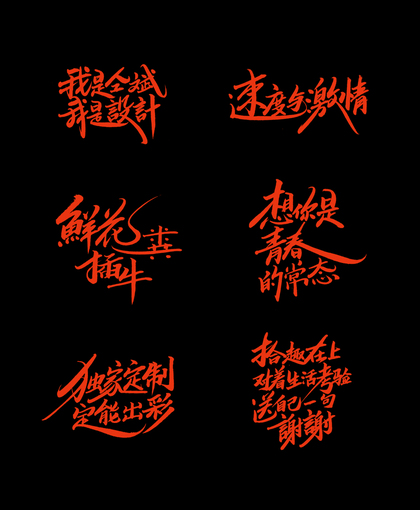 我是仝斌
我是設計
速度与激情
鮮花
插牛粪
想你是
青春
的常态
独家定制
定能出彩
拾趣在上
对着生活考验
送自己一句
謝謝